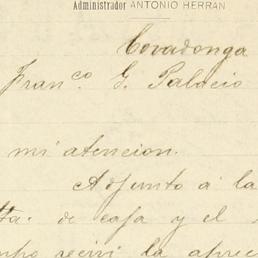 Administrador ANTONIO HERRAN
Covadonga
Franco. G. Palacio
mi atencion.
Adjunto á la
de caja y el
recivi la